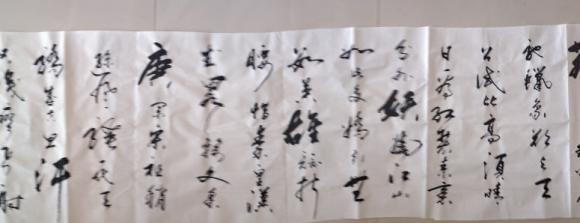 驰蜡象欲与天
公试比高须晴
日看红装素裹
分外妖娆江山
如此多娇引无
数英雄竞折
腰惜秦皇汉
武略输文采
唐宗宋祖稍
逊风骚一代天
骄成吉思汗
只识弯弓射